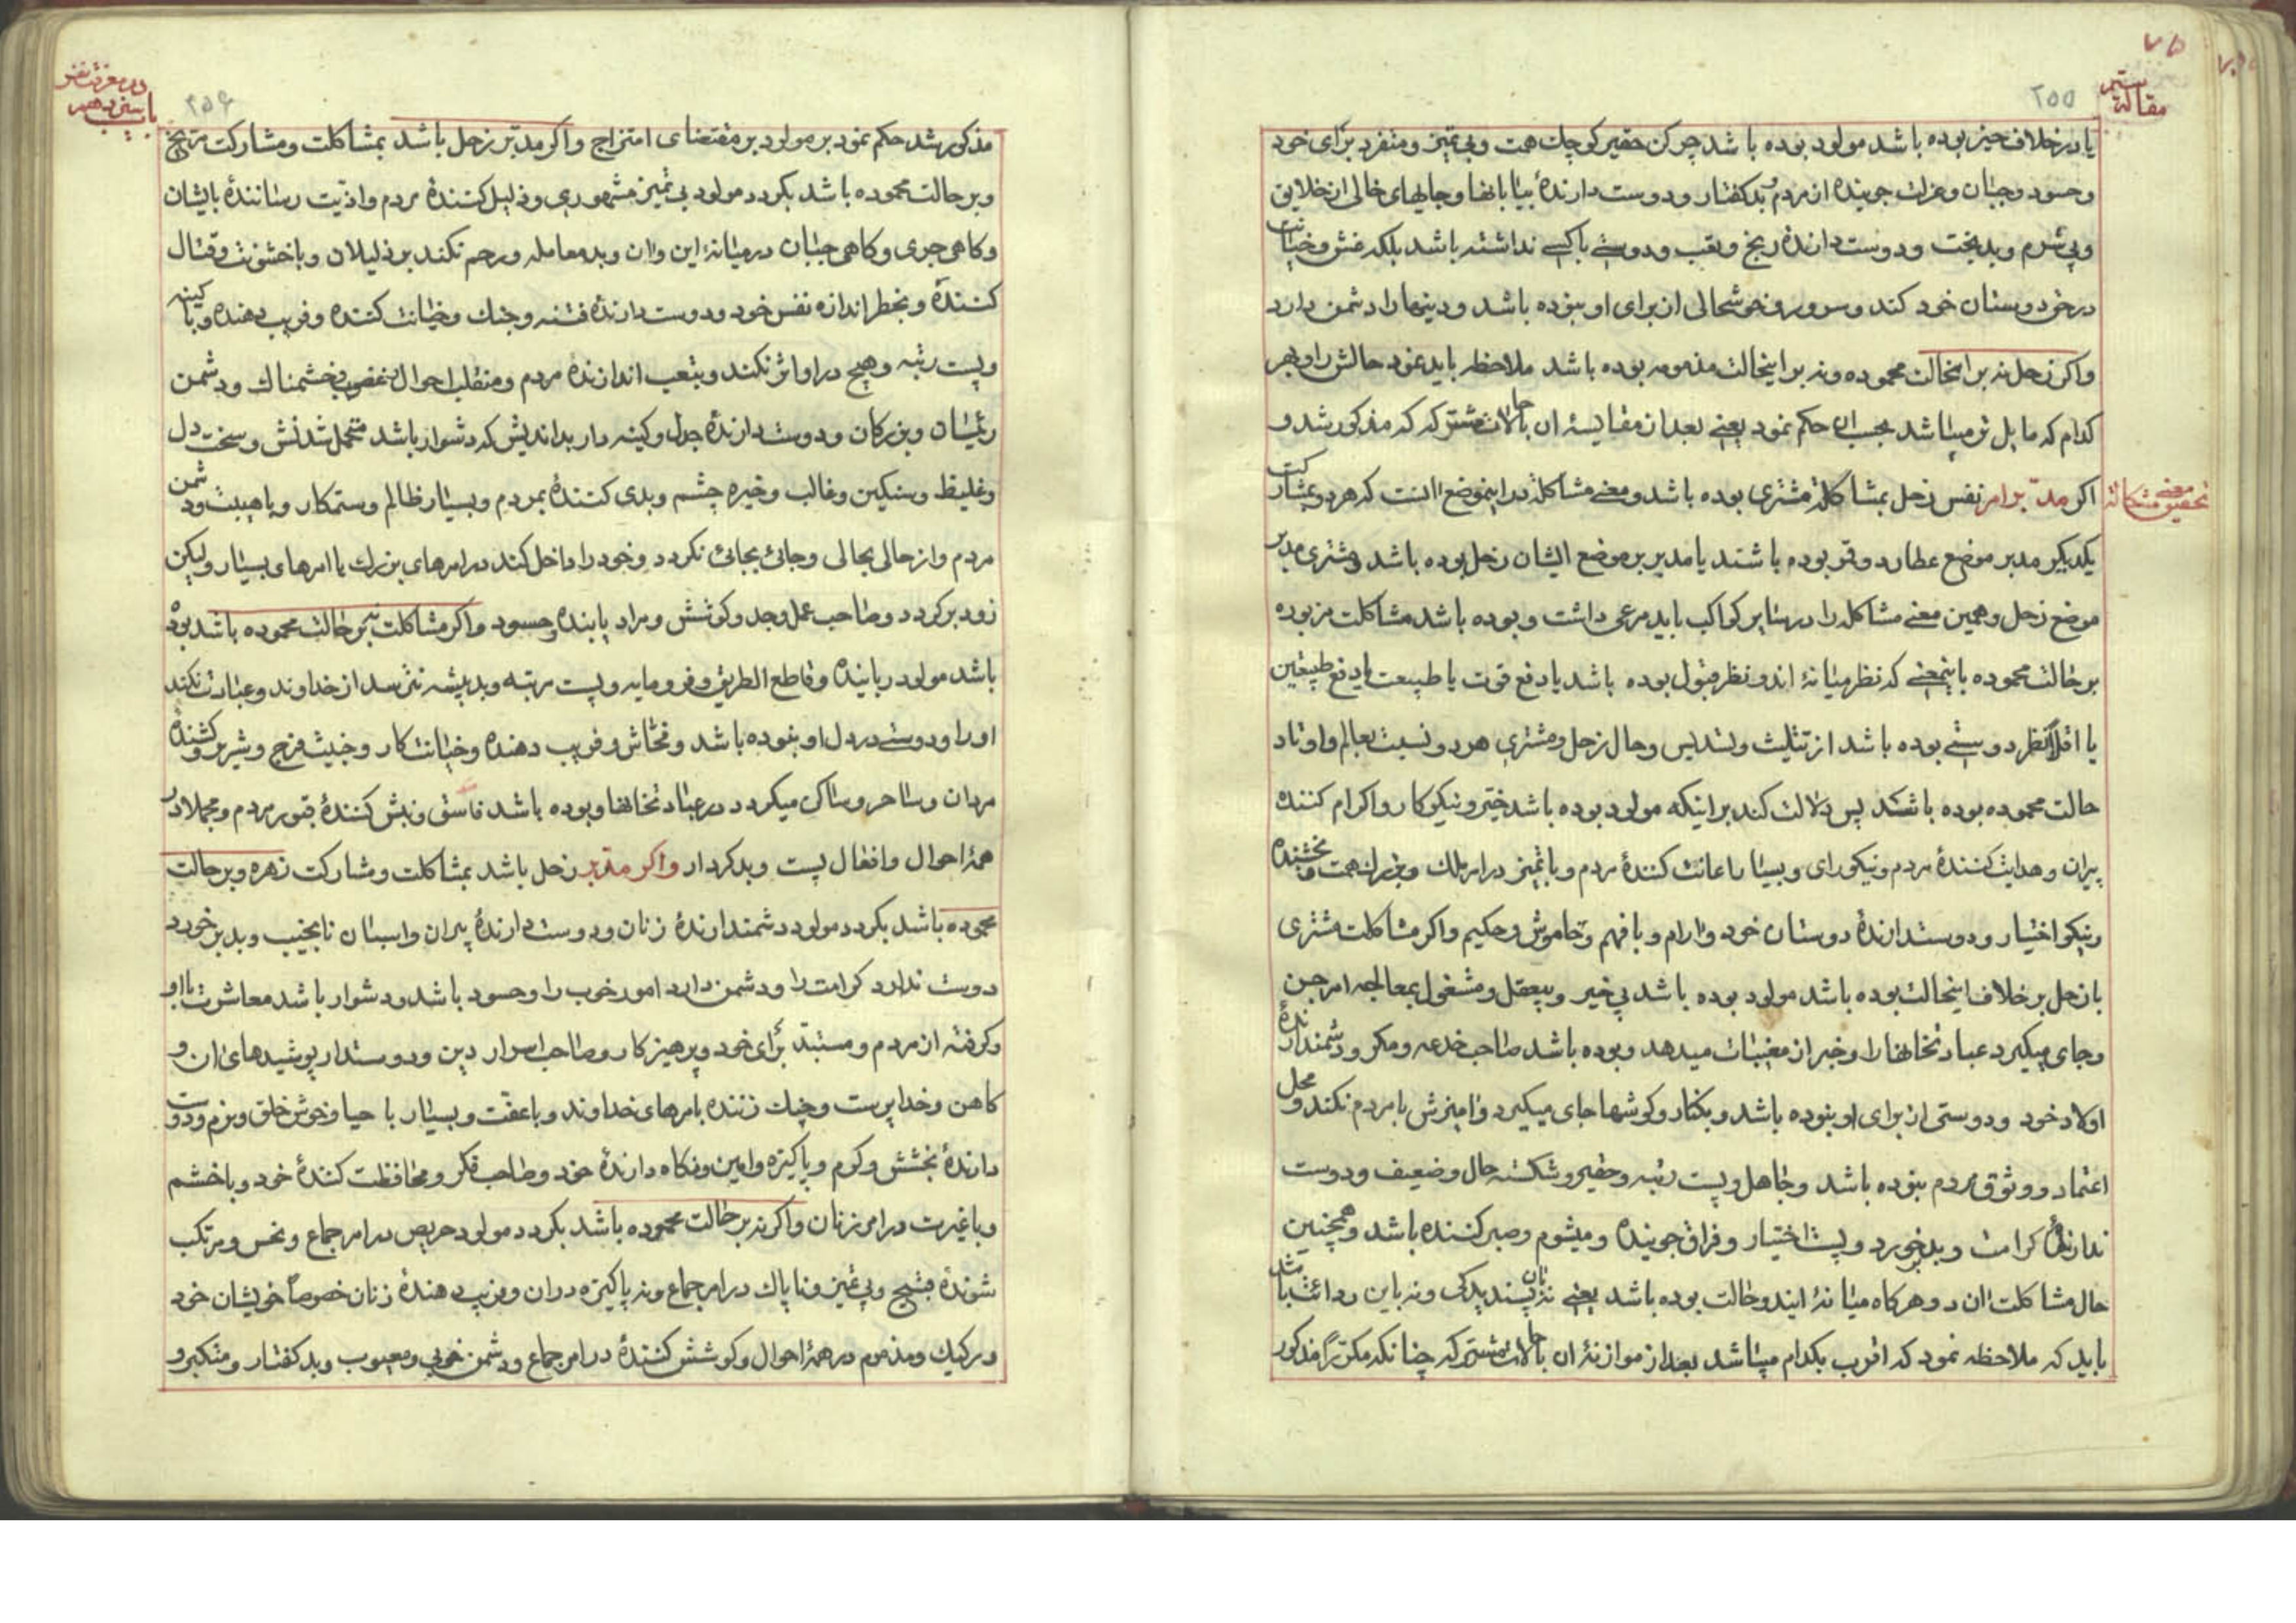 مقالهٔ سیّم
۲۵۵
یا در خلاف حیز بوده باشد مولود بوده باشد چرکن حقیر کوچك همت و بی تمیز و منفرد برای خود
و حسود و جبان و عزلت جوینده از مردم و بدکفتار و دوست دارندهٔ بیابانها و جایهای خالی از خلایق
و بی شرم و بدبخت و دوست دارندهٔ رنج و تعب و دوستی باکسی نداشته باشد بلکه غش و خیانت
در حق دوستان خود کند و سرور و خوشحالی از برای او نبوده باشد و دینها را دشمن دارد
واکر زحل نه بر اینحالت محموده و نه بر اینحالت مذمومه بوده باشد ملاحظه باید نمود حالش را و بهر
کدام که مایل تر میباشد بحسب ان حکم نمود یعنی بعد از مقایسهٔ ان با حالات مشترکه که مذکور شد و
اکر مدبّر امر نفس زحل بمشاکلهٔ مشتری بوده باشد و معنی مشاکله در اینموضع انست که هر دو بمشارکت
تحقیق معنی مشاکله
یکدیکر مدبر موضع عطارد و قمر بوده باشند یا مدبر بر موضع ایشان زحل بوده باشد و مشتری مدبر
موضع زحل و همین معنی مشاکله را در سایر کواکب باید مرعی داشت و بوده باشد مشاکلت مزبوره
بر حالت محموده باینمعنی که نظر میانهٔ اندو نظر قبول بوده باشد یا دفع قوت یا طبیعت یا دفع طبیعتین
یا اقلا نظر دوستی بوده باشد از تثلیث و تسدیس و حال زحل و مشتری هر دو نسبت بعالم و اوتاد
حالت محموده بوده باشند پس دلالت کند بر اینکه مولود بوده باشد خیّر و نیکو کار و اکرام کننده
پیران و هدایت کنندهٔ مردم و نیکورای و بسیار اعانت کنندهٔ مردم و با تمیز در امر ملك و بزرك همت و بخشنده
و نیکو اختیار و دوستدارندهٔ دوستان خود و ارام و با فهم و خاموش و حکیم واکر مشاکلت مشتری
با زحل بر خلاف اینحالت بوده باشد مولود بوده باشد بی خیر و بیعقل و مشغول بمعالجه امر جن
و جای میکیرد عبادتخانها را و خبر از مغیبات میدهد و بوده باشد صاحب خدعه و مکر و دشمندارندهٔ
اولاد خود و دوستی از برای او نبوده باشد و بکنار و کوشها جای میکیرد و امیزش با مردم نکند و محل
اعتماد و وثوق مردم نبوده باشد و جاهل و پست رتبه و حقیر و شکسته حال و ضعیف و دوست
ندارندهٔ کرامت و بدخورد و پست اختیار و فراق جوینده و میشوم و صبر کننده باشد و همچنین
حال مشاکلت ان دو هرکاه میانهٔ ایندو حالت بوده باشد یعنی نه بان پسندیدکی و نه باین ردائت باشد
باید که ملاحظه نمود که اقرب بکدام میباشد بعد از موازنهٔ ان با حالات مشترکه چنانکه مکرّر مذکور
در معرفت نفس
باب سیزدهم
۲۵۶
مذکور شد حکم نمود بر مولود بر مقتضای امتزاج واکر مدبّر زحل باشد بمشاکلت و مشارکت مرّیخ
و بر حالت محموده باشد بکردد مولود بی تمیز متهوری و ذلیل کنندهٔ مردم و اذیت رسانندهٔ بایشان
و کاهی جری و کاهی جبان در میانهٔ این و ان و بد معامله و رحم نکند بر ذلیلان و با خشونت و قتال
کنندهٔ و بخطر اندازه نفس خود و دوست دارندهٔ فتنه و جنك و خیانت کننده و فریب دهنده و با کینه
و پست رتبه و هیچ در او اثر نکند و بتعب اندازندهٔ مردم و منقلب احوال و غضوب و خشمناك و دشمن
رئیسان و بزرکان و دوست دارندهٔ جدل و کینه دار بد اندیش که دشوار باشد متحمل شدنش و سخت دل
و غلیظ و سنکین و غالب و خیره چشم و بدی کنندهٔ بمردم و بسیار ظالم و ستمکار و با هیبت و دشمن
مردم و از حالی بحالی و جائی بجائی نکردد و خود را داخل کند در امرهای بزرك با امرهای بسیار ولیکن
زود برکردد و صاحب عمل و جد و کوشش و مراد یابنده و حسود واکر مشاکلت نه بر حالت محموده باشد بوده
باشد مولود رباینده و قاطع الطریق و فرومایه و پست رتبه و بدپیشه نترسد از خداوند و عبادت نکند
او را و دوستی در دل او نبوده باشد و فحّاش و فریب دهنده و خیانت کار و خبیث فرج و شریر و کشنده
مردان و ساحر و ساکن میکردد در عبادتخانها و بوده باشد فاسق و نبش کنندهٔ قبور مردم و مجملا در
همهٔ احوال و افعال پست و بدکردار واکر مدّبر زحل باشد بمشاکلت و مشارکت زهره و بر حالت
محموده باشد بکردد مولود دشمندارندهٔ زنان و دوست دارندهٔ پیران و اسبان نانجیب و بدبرخورد
دوست ندارد کرامت را و دشمن دارد امور خوب را و حسود باشد و دشوار باشد معاشرت با او
و کرفته از مردم و مستبدّ برأی خود و پرهیزکار و صاحب اسرار دین و دوستدار پوشیدهای ان و
کاهن و خداپرست و چنك زننده بامرهای خداوند و با عفّت و بسیار با حیا و خوش خلق و بزم و دوست
دارندهٔ بخشش و کرم و پاکیزه و امین و نکاه دارندهٔ خود و صاحب فکر و محافظت کنندهٔ خود و با خشم
و با غیرت در امر زنان واکر نه بر حالت محموده باشد بکردد مولود حریص در امر جماع و نحس و مرتکب
شوندهٔ قبیح و بی تمیز و ناپاك در امر جماع و نه پاکیزه در ان و فریب دهندهٔ زنان خصوصاً خویشان خود
و رکیك و مذموم در همهٔ احوال و کوشش کنندهٔ در امر جماع و دشمن خوبی و معیوب و بدکفتار و متکبر و